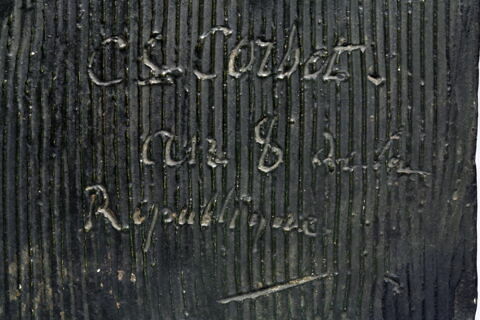 C. L. Corbet.
an 8 de la
République.